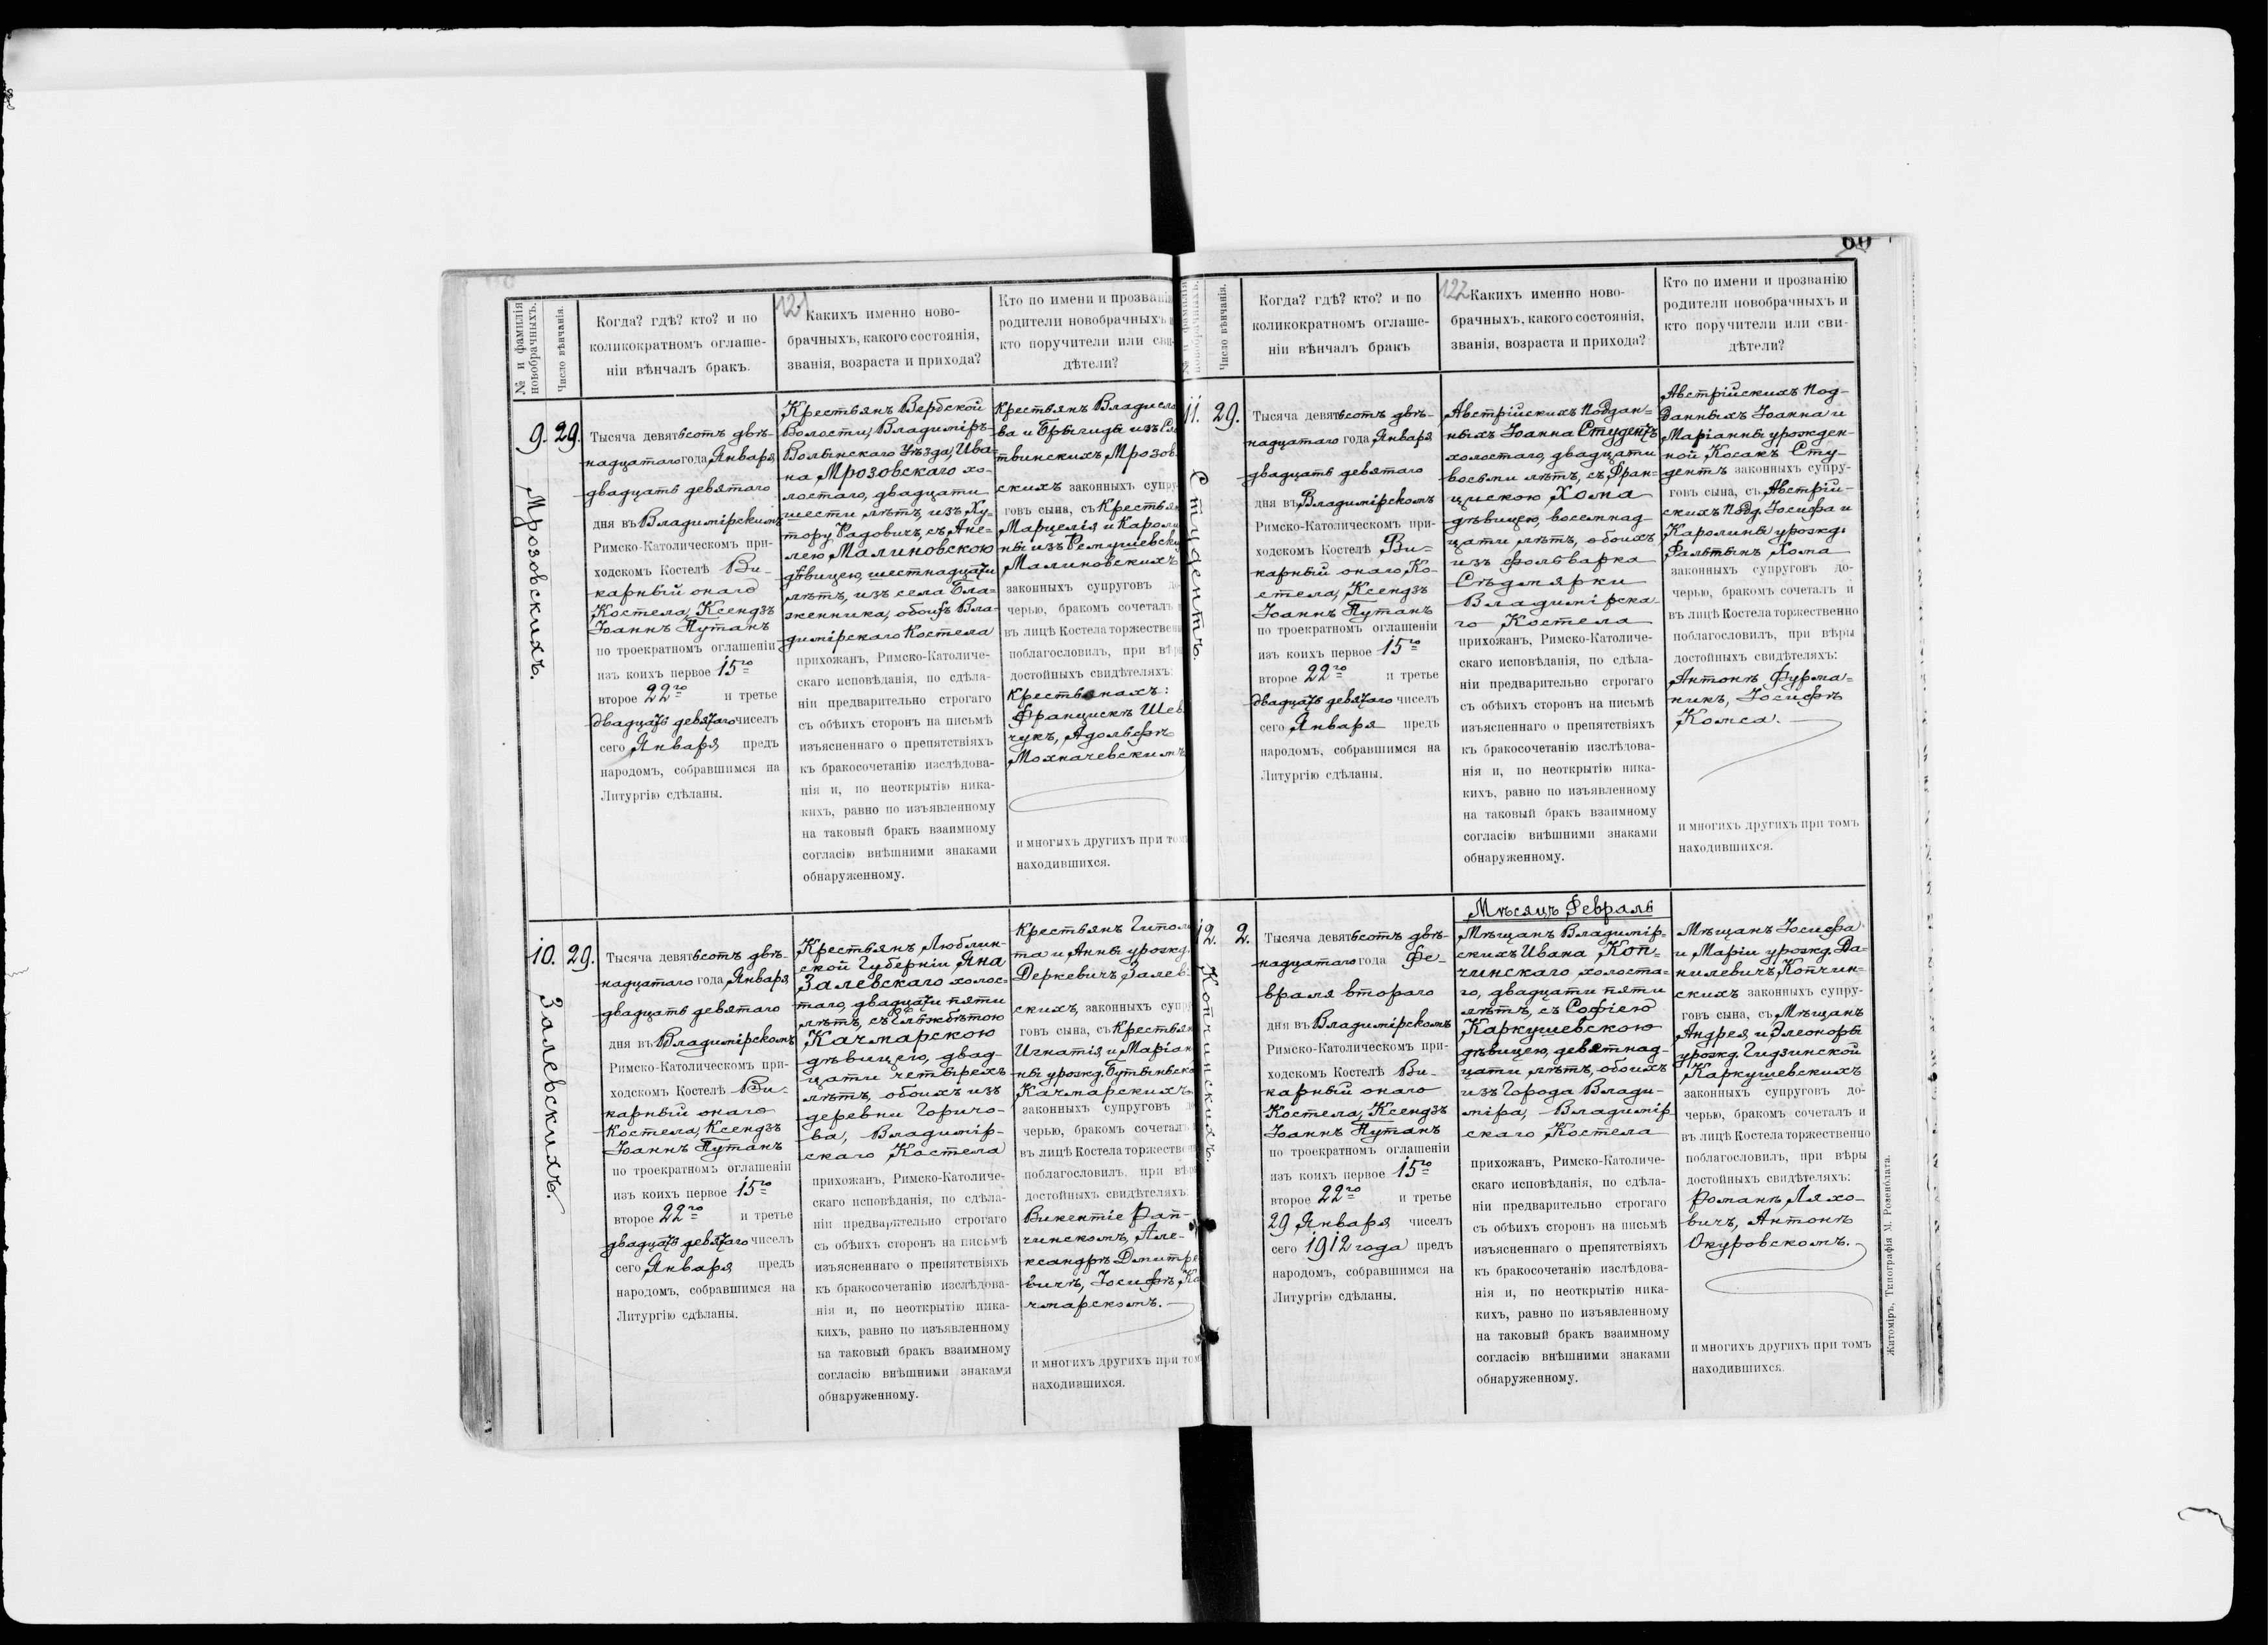 60
№ и фамилія
новобрачныхъ.
Число вѣнчанія.
Когда? гдѣ? кто? и по
коликократномъ оглаше-
ніи вѣнчалъ бракъ.
121
Какихъ именно ново-
брачныхъ, какого состоянія,
званія, возраста и прихода?
Кто по имени и прозванію
родители новобрачныхъ и
кто поручители или сви-
дѣтели?
9.
29.
Мрозовскихъ.
Тысяча девятьсотъ двѣ-
надцатаго года Января
двадцать девятаго
дня въ Владимірскимъ
Римско-Католическомъ при-
ходскомъ Костелѣ Ви-
карный онаго
Костела, Ксендзъ
Іоаннъ Путанъ
по троекратномъ оглашеніи
изъ коихъ первое 15го
второе 22го и третье
двадцать девятаго чиселъ
сего Января предъ
народомъ, собравшимся на
Литургію сдѣланы.
Крестьянъ Вербской
Волости, Владиміръ-
Волынскаго Уѣзда, Ива-
на Мрозовскаго хо-
лостаго, двадцати
шести лѣтъ, изъ Ху-
тору Радовичъ, съ Ане-
лею Малиновскою
дѣвицею, шестнадцати
лѣтъ, изъ села Бла-
женника, обоихъ Вла-
димірскаго Костела
прихожанъ, Римско-Католиче-
скаго исповѣданія, по сдѣла-
ніи предварительно строгаго
съ обѣихъ сторонъ на письмѣ
изъясненнаго о препятствіяхъ
къ бракосочетанію изслѣдова-
нія и, по неоткрытію ника-
кихъ, равно по изъявленному
на таковый бракъ взаимному
согласію внѣшними знаками
обнаруженному.
Крестьянъ Владисла
ва и Бригиды изъ
твинскихъ Мрозов
скихъ законныхъ супру
говъ сына, съ Крестьян
Марцелія и Кароли
ны изъ Ремушевских
Малиновскихъ
законныхъ супруговъ до
черью, бракомъ сочеталъ и
въ лицѣ Костела торжествен
поблагословилъ, при вѣры
достойныхъ свидѣтеляхъ:
Крестьянахъ:
Францискѣ Шев
чукъ, Адольфѣ
Мохначевскимъ
и многихъ другихъ при томъ
находившихся.
10.
29.
Залевскихъ.
Тысяча девятьсотъ двѣ-
надцатаго года Января
двадцать девятаго
дня въ Владимірскомъ
Римско-Католическомъ при-
ходскомъ Костелѣ Ви-
карный онаго
Костела, Ксендзъ
Іоаннъ Путанъ
по троекратномъ оглашеніи
изъ коихъ первое 15го
второе 22го и третье
двадцать девятаго чиселъ
сего Января предъ
народомъ, собравшимся на
Литургію сдѣланы.
Крестьянъ Люблин-
ской Губерніи Яна
Залевскаго холос-
таго, двадцати пяти
лѣтъ, съ Елжбѣтою
Качмарскою
дѣвицею, двад-
цати четырехъ
лѣтъ, обоихъ изъ
деревни Горичо-
ва, Владимір-
скаго Костела
прихожанъ, Римско-Католиче-
скаго исповѣданія, по сдѣла-
ніи предварительно строгаго
съ обѣихъ сторонъ на письмѣ
изъясненнаго о препятствіяхъ
къ бракосочетанію изслѣдова-
нія и, по неоткрытію ника-
кихъ, равно по изъявленному
на таковый бракъ взаимному
согласію внѣшними знаками
обнаруженному.
Крестьянъ Гиполи
та и Анны урожд.
Деркевичъ Залев-
скихъ, законныхъ супру
говъ сына, съ Крестьян
Игнатія и Маріан
ны урожд. Бутыньско
Качмарскихъ
законныхъ супруговъ до
черью, бракомъ сочеталъ и
въ лицѣ Костела торжествен
поблагословилъ, при вѣры
достойныхъ свидѣтеляхъ:
Викентіе Рап-
чинскомъ, Але-
ксандрѣ Дмитре
вичъ, Іосифѣ Ка
чмарскомъ.
и многихъ другихъ при томъ
находившихся.
№ и фамилія
новобрачныхъ.
Число вѣнчанія.
Когда? гдѣ? кто? и по
коликократномъ оглаше-
ніи вѣнчалъ бракъ
122
Какихъ именно ново-
брачныхъ, какого состоянія,
званія, возраста и прихода?
Кто по имени и прозванію
родители новобрачныхъ и
кто поручители или сви-
дѣтели?
11.
29.
Студентъ.
Тысяча девятьсотъ двѣ-
надцатаго года Января
двадцать девятаго
дня въ Владимірскомъ
Римско-Католическомъ при-
ходскомъ Костелѣ Ви-
карный онаго Ко-
стела, Ксендзъ
Іоаннъ Путанъ
по троекратномъ оглашеніи
изъ коихъ первое 15го
второе 22го и третье
двадцать девятаго чиселъ
сего Января предъ
народомъ, собравшимся на
Литургію сдѣланы.
Австрійскихъ Поддан-
ныхъ Іоанна Студентъ
холостаго, двадцати
восьми лѣтъ, съ Фран-
цискою Хома
дѣвицею, восемнад-
цати лѣтъ, обоихъ
изъ фольварка
Сѣдмярки
Владимірска-
го Костела
прихожанъ, Римско-Католиче-
скаго исповѣданія, по сдѣла-
ніи предварительно строгаго
съ обѣихъ сторонъ на письмѣ
изъясненнаго о препятствіяхъ
къ бракосочетанію изслѣдова-
нія и, по неоткрытію ника-
кихъ, равно по изъявленному
на таковый бракъ взаимному
согласію внѣшними знаками
обнаруженному.
Австрійскихъ Под-
данныхъ Іоанна и
Маріанны урожден-
ной Косакъ Сту-
дентъ законныхъ супру-
говъ сына, съ Австрій-
скихъ Подд. Іосифа и
Каролины урожд.
Фалтынъ Хома
законныхъ супруговъ до-
черью, бракомъ сочеталъ и
въ лицѣ Костела торжественно
поблагословилъ, при вѣры
достойныхъ свидѣтеляхъ:
Антонѣ Фурма-
никъ, Іосифѣ
Комса.
и многихъ другихъ при томъ
находившихся.
12.
2.
Копчинскихъ.
Тысяча девятьсотъ двѣ-
надцатаго года Фе-
враля втораго
дня въ Владимірскомъ
Римско-Католическомъ при-
ходскомъ Костелѣ Ви-
карный онаго
Костела, Ксендзъ
Іоаннъ Путанъ
по троекратномъ оглашеніи
изъ коихъ первое 15го
второе 22го и третье
29 Января чиселъ
сего 1912 года предъ
народомъ, собравшимся на
Литургію сдѣланы.
Мѣсяцъ Февраль
Мѣщанъ Владимір-
скихъ Ивана Коп-
чинскаго холоста-
го, двадцати пяти
лѣтъ, съ Софіею
Каркушевскою
дѣвицею, девятнад-
цати лѣтъ, обоихъ
изъ Города Влади-
міра, Владимір
скаго Костела
прихожанъ, Римско-Католиче-
скаго исповѣданія, по сдѣла-
ніи предварительно строгаго
съ обѣихъ сторонъ на письмѣ
изъясненнаго о препятствіяхъ
къ бракосочетанію изслѣдова-
нія и, по неоткрытію ника-
кихъ, равно по изъявленному
на таковый бракъ взаимному
согласію внѣшними знаками
обнаруженному.
Мѣщанъ Іосифа
и Маріи урожд. Да-
нилевичъ, Копчин-
скихъ законныхъ супру-
говъ сына, съ Мѣщанъ
Андрея и Элеоноры
урожд. Гидзинской
Каркушевскихъ
законныхъ супруговъ до-
черью, бракомъ сочеталъ и
въ лицѣ Костела торжественно
поблагословилъ, при вѣры
достойныхъ свидѣтеляхъ:
Романѣ Ляхо-
вичъ, Антонѣ
Окуровскомъ.
и многихъ другихъ при томъ
находившихся.
Житоміръ, Типографія М. Розенблата.